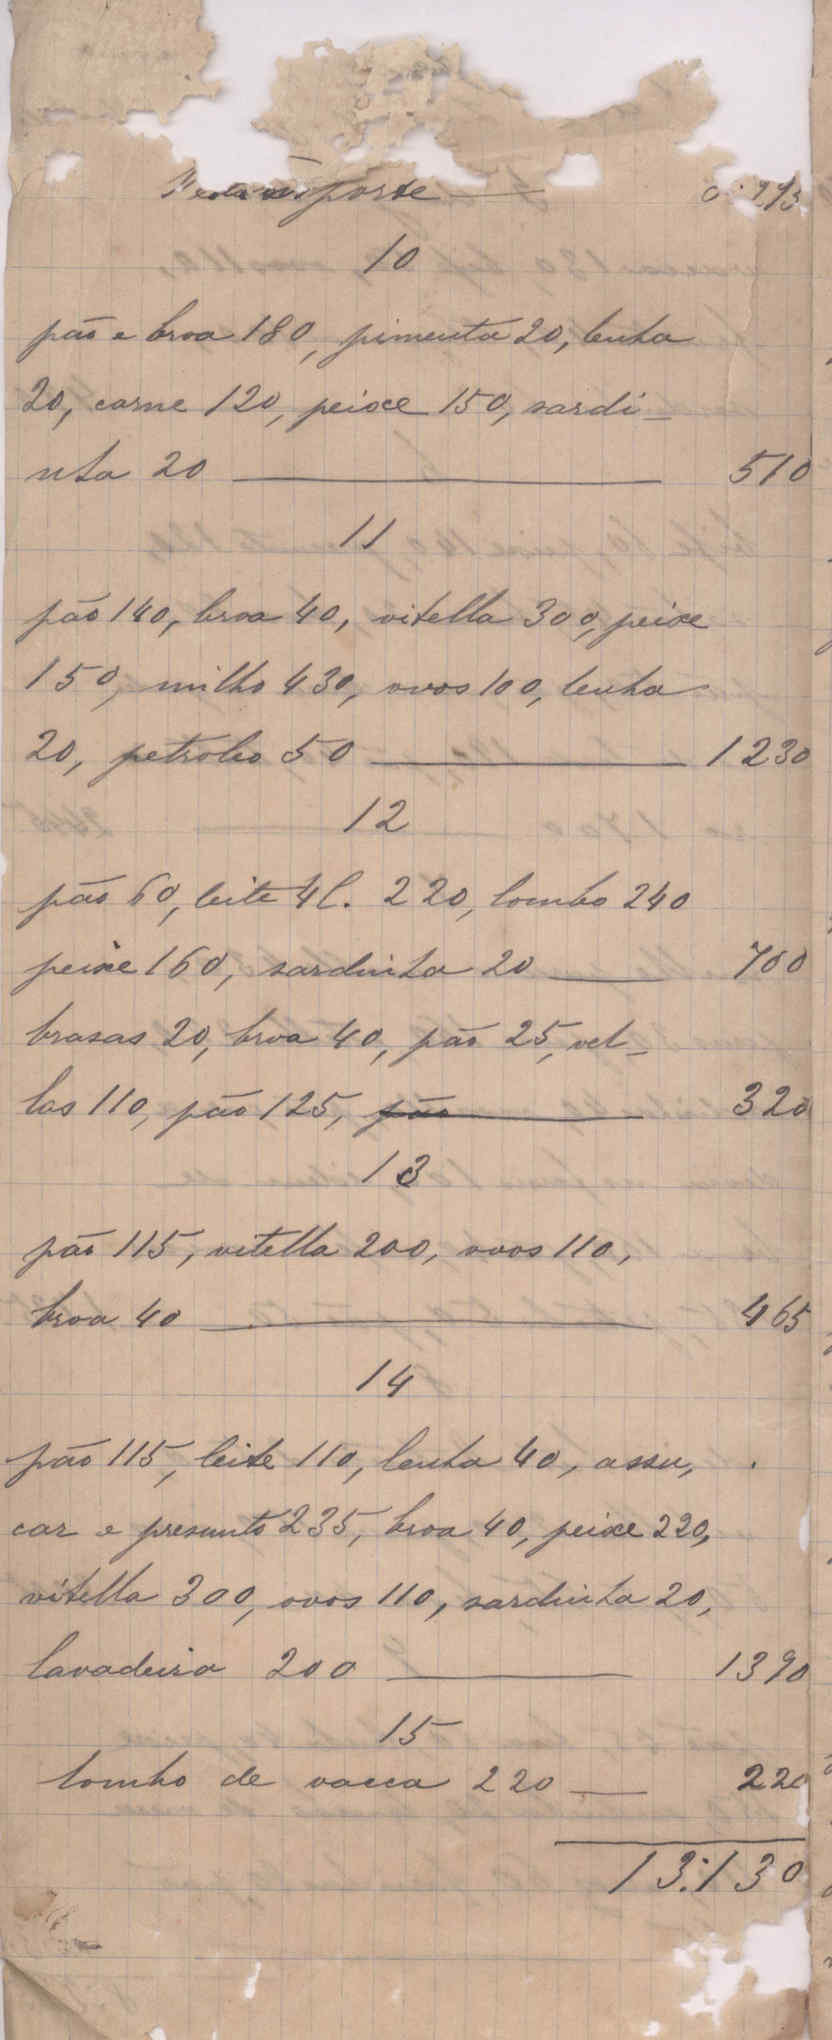 Transporte
10
pão e broa 180, pimenta 20, lenha
20, carne 120, peixe 150, sardi-
nha 20 510
11
pão 140, broa 40, vitella 300, peixe
150, milho 430, ovos 100, lenha
20, petroleo 50 1230
12
pão 60, leite 4l. 220, lombo 240
peixe 160, sardinha 20 700
brasas 20, broa 40, pão 25, vel-
las 110, pão 125, pão 320
13
pão 115, vitella 200, ovos 110,
broa 40 465
14
pão 115, leite 110, lenha 40, assu,
car e presunto 235, broa 40, peixe 220,
vitella 300, ovos 110, sardinha 20,
lavadeira 200 1390
15
lombo de vacca 220 220
13:130